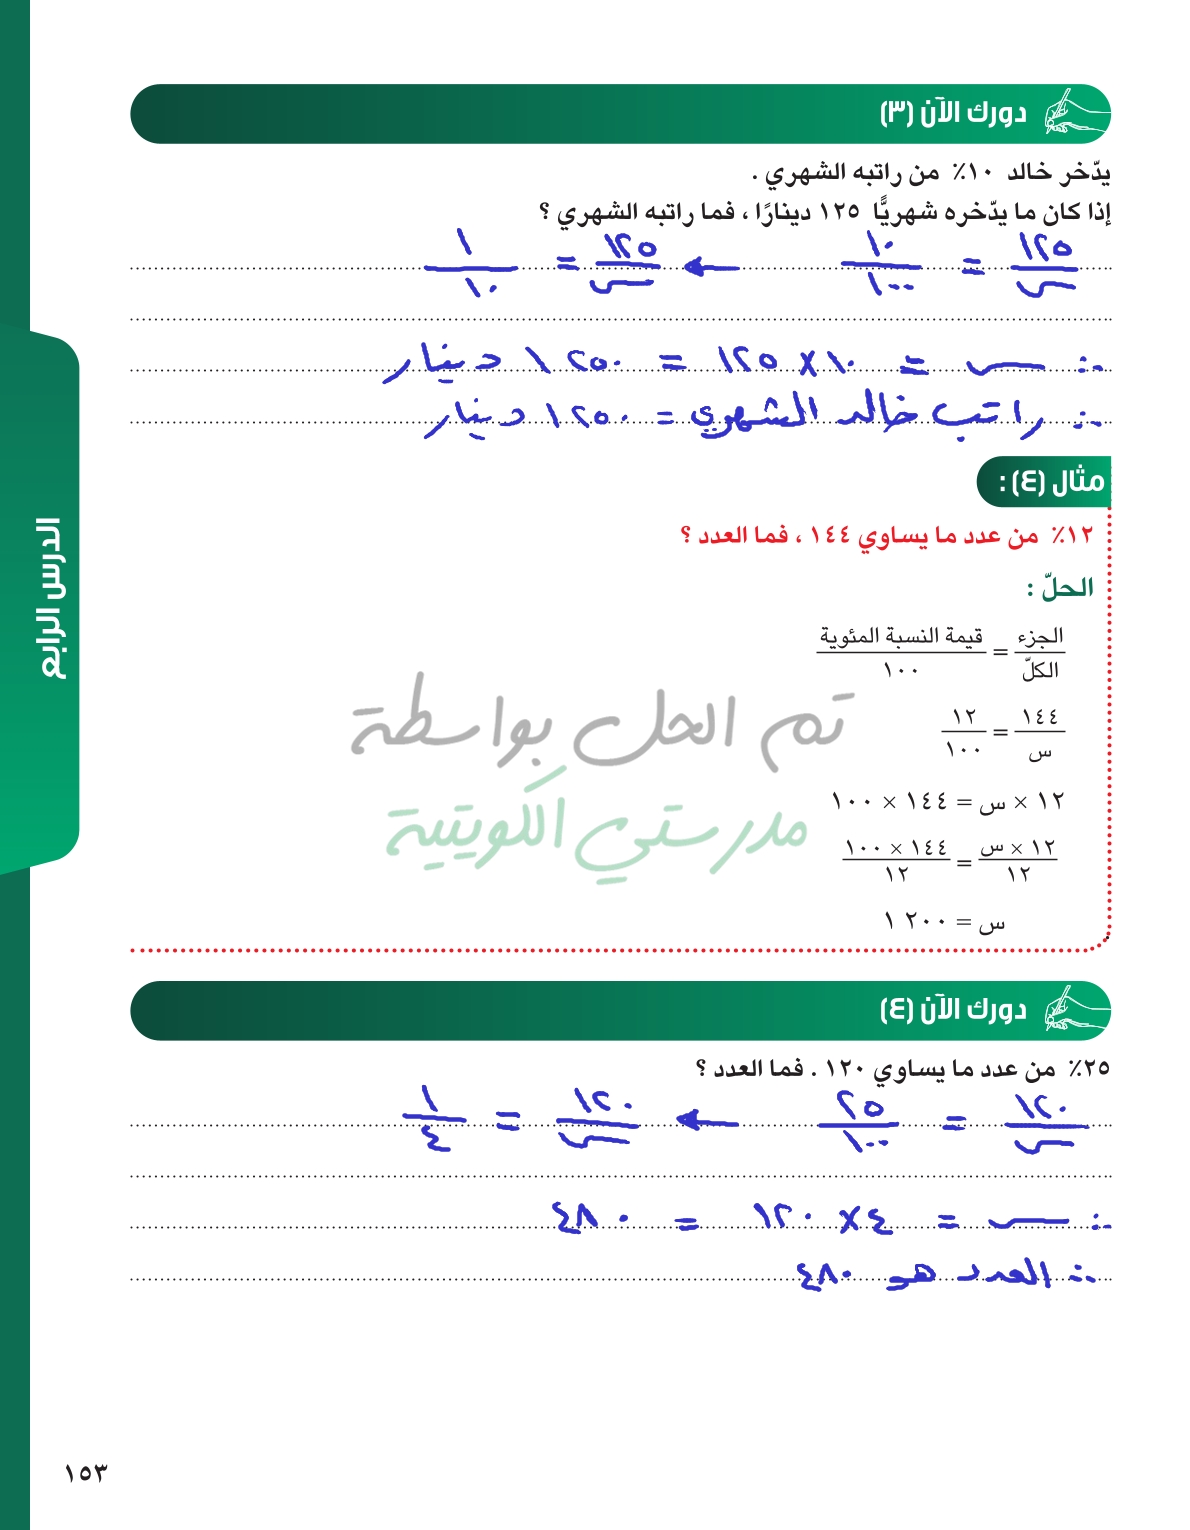 دورك الآن (٣)
يدّخر خالد ١٠٪ من راتبه الشهري .
إذا كان ما يدّخره شهريًّا ١٢٥ دينارًا ، فما راتبه الشهري ؟
١٢٥/س = ١٠/١٠٠ ← ١٢٥/س = ١/١٠
∴ س = ١٠ × ١٢٥ = ١٢٥٠ دينار
∴ راتب خالد الشهري = ١٢٥٠ دينار
مثال (٤) :
١٢٪ من عدد ما يساوي ١٤٤ ، فما العدد ؟
الحلّ :
الجزء/الكلّ = قيمة النسبة المئوية/١٠٠
١٤٤/س = ١٢/١٠٠
١٢ × س = ١٤٤ × ١٠٠
١٢ × س/١٢ = ١٤٤ × ١٠٠/١٢
س = ٢٠٠ ١
تم الحل بواسطة
مدرستي الكويتية
دورك الآن (٤)
٢٥٪ من عدد ما يساوي ١٢٠ . فما العدد ؟
١٢٠/س = ٢٥/١٠٠ ← ١٢٠/س = ١/٤
∴ س = ٤ × ١٢٠ = ٤٨٠
∴ العدد هو ٤٨٠
الدرس الرابع
١٥٣